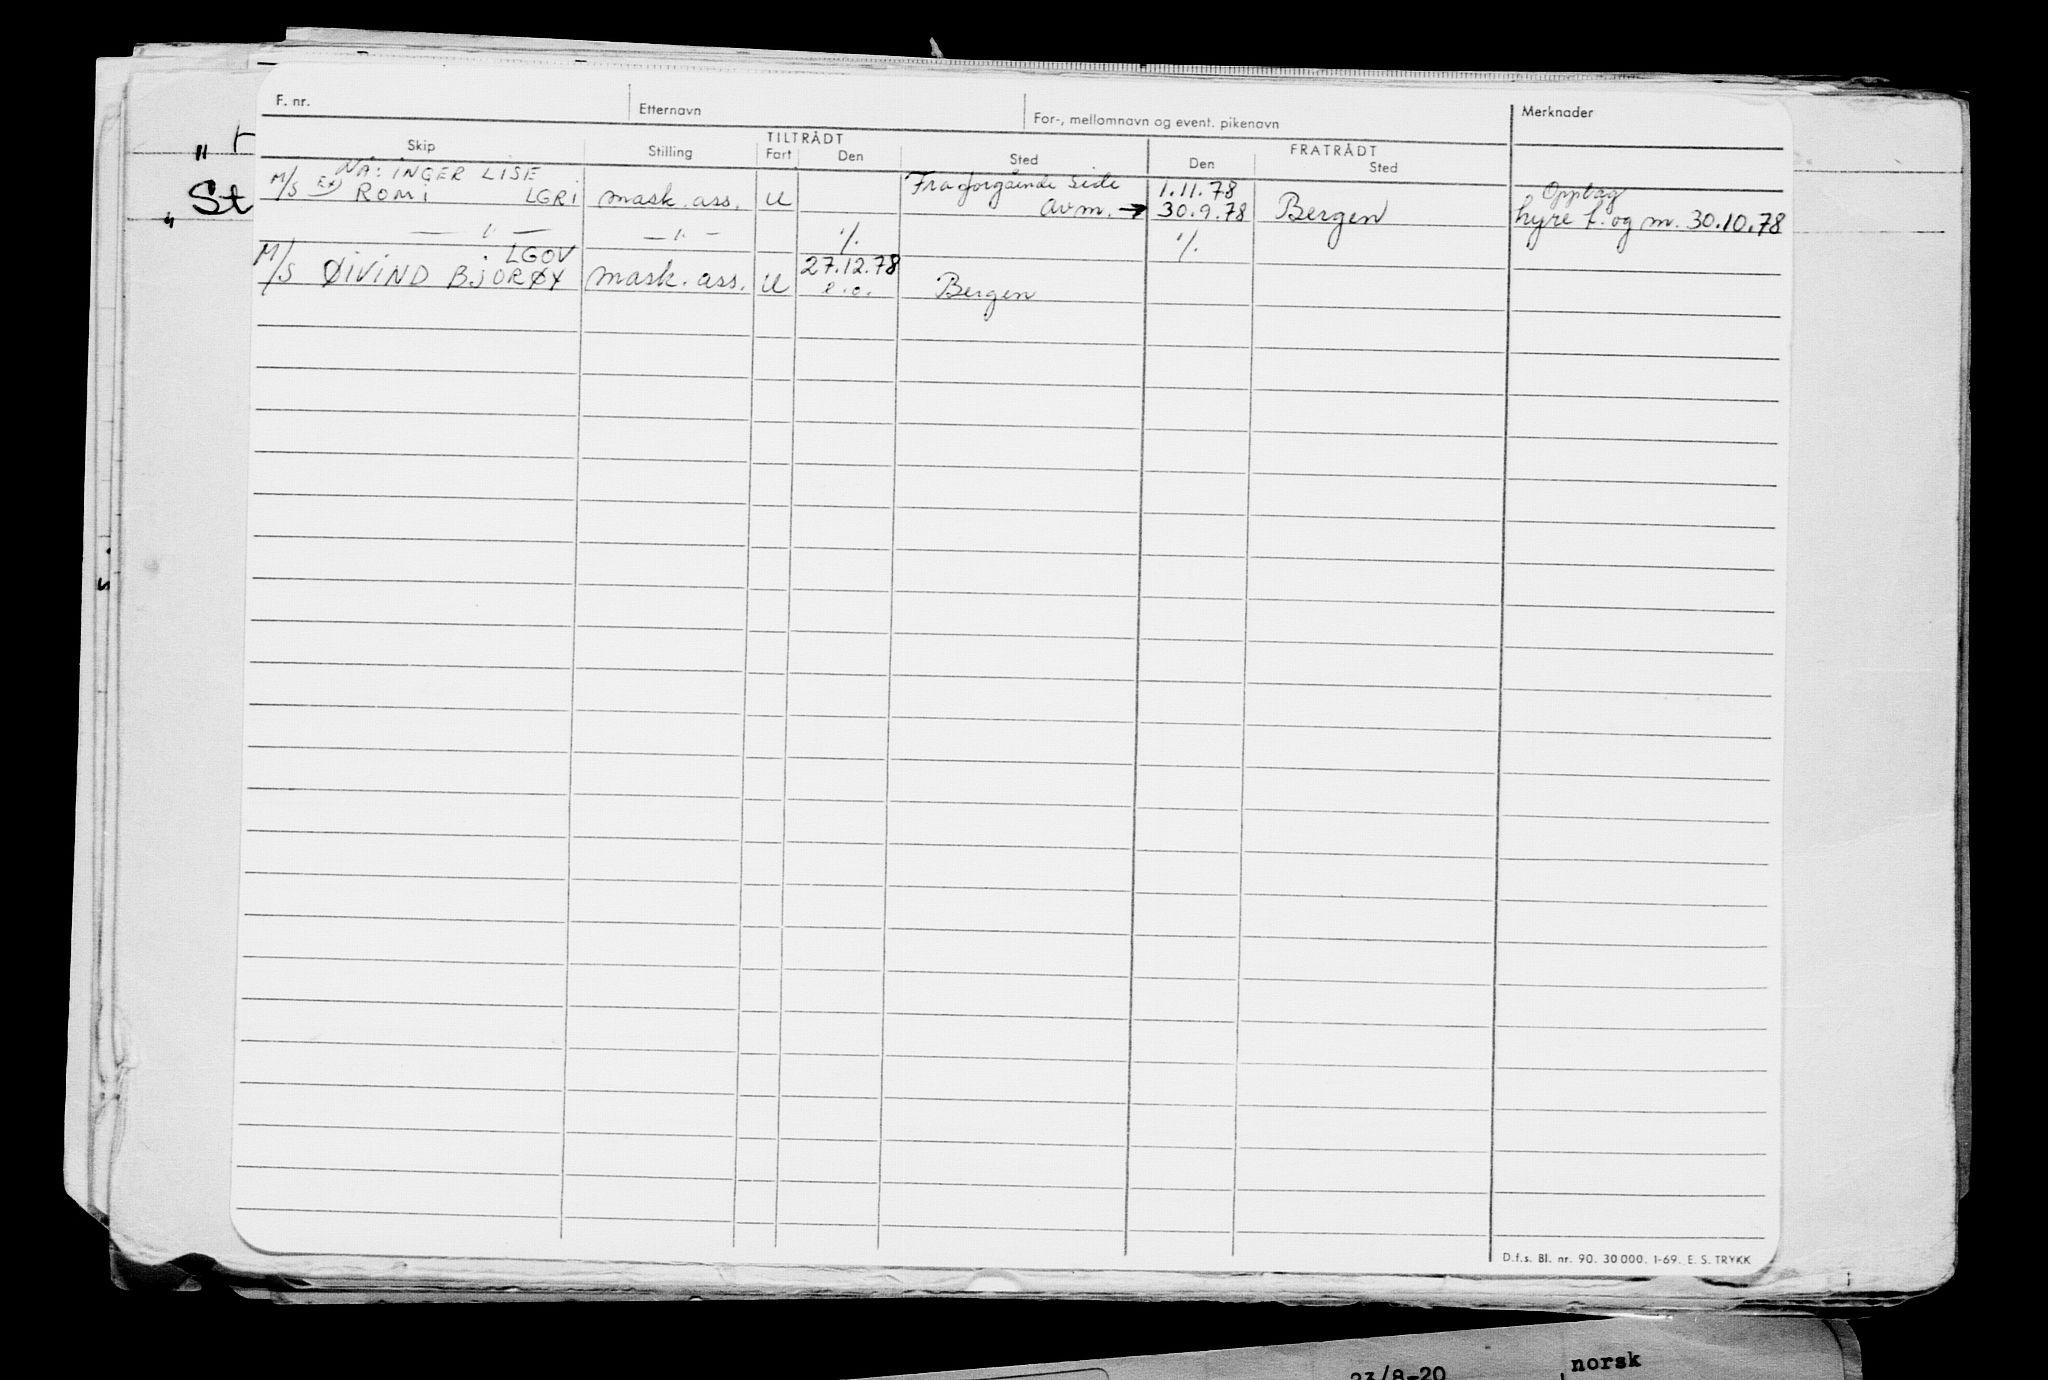 F. nr.
Etternavn
For-, mellomnavn og event. pikenavn
Merknader
TILTRÅDT
FRATRÅDT
Skip
Stilling
Fart
Den
Sted
Den
Sted
NÅ: INGER LISE
M/S EX ROMI LGRI mask. ass. U Fra forgående side avm. → 1.11.78 30.9.78 Bergen Opptag hyre t. og m. 30.10.78
— " — — " — ·/. ·/.
M/S ØIVIND BJORØY LGOV mask. ass. U 27.12.78 e.o. Bergen
"
St
"
D.f.s. Bl. nr. 90. 30 000. 1-69. E. S. TRYKK
23/8-20
norsk